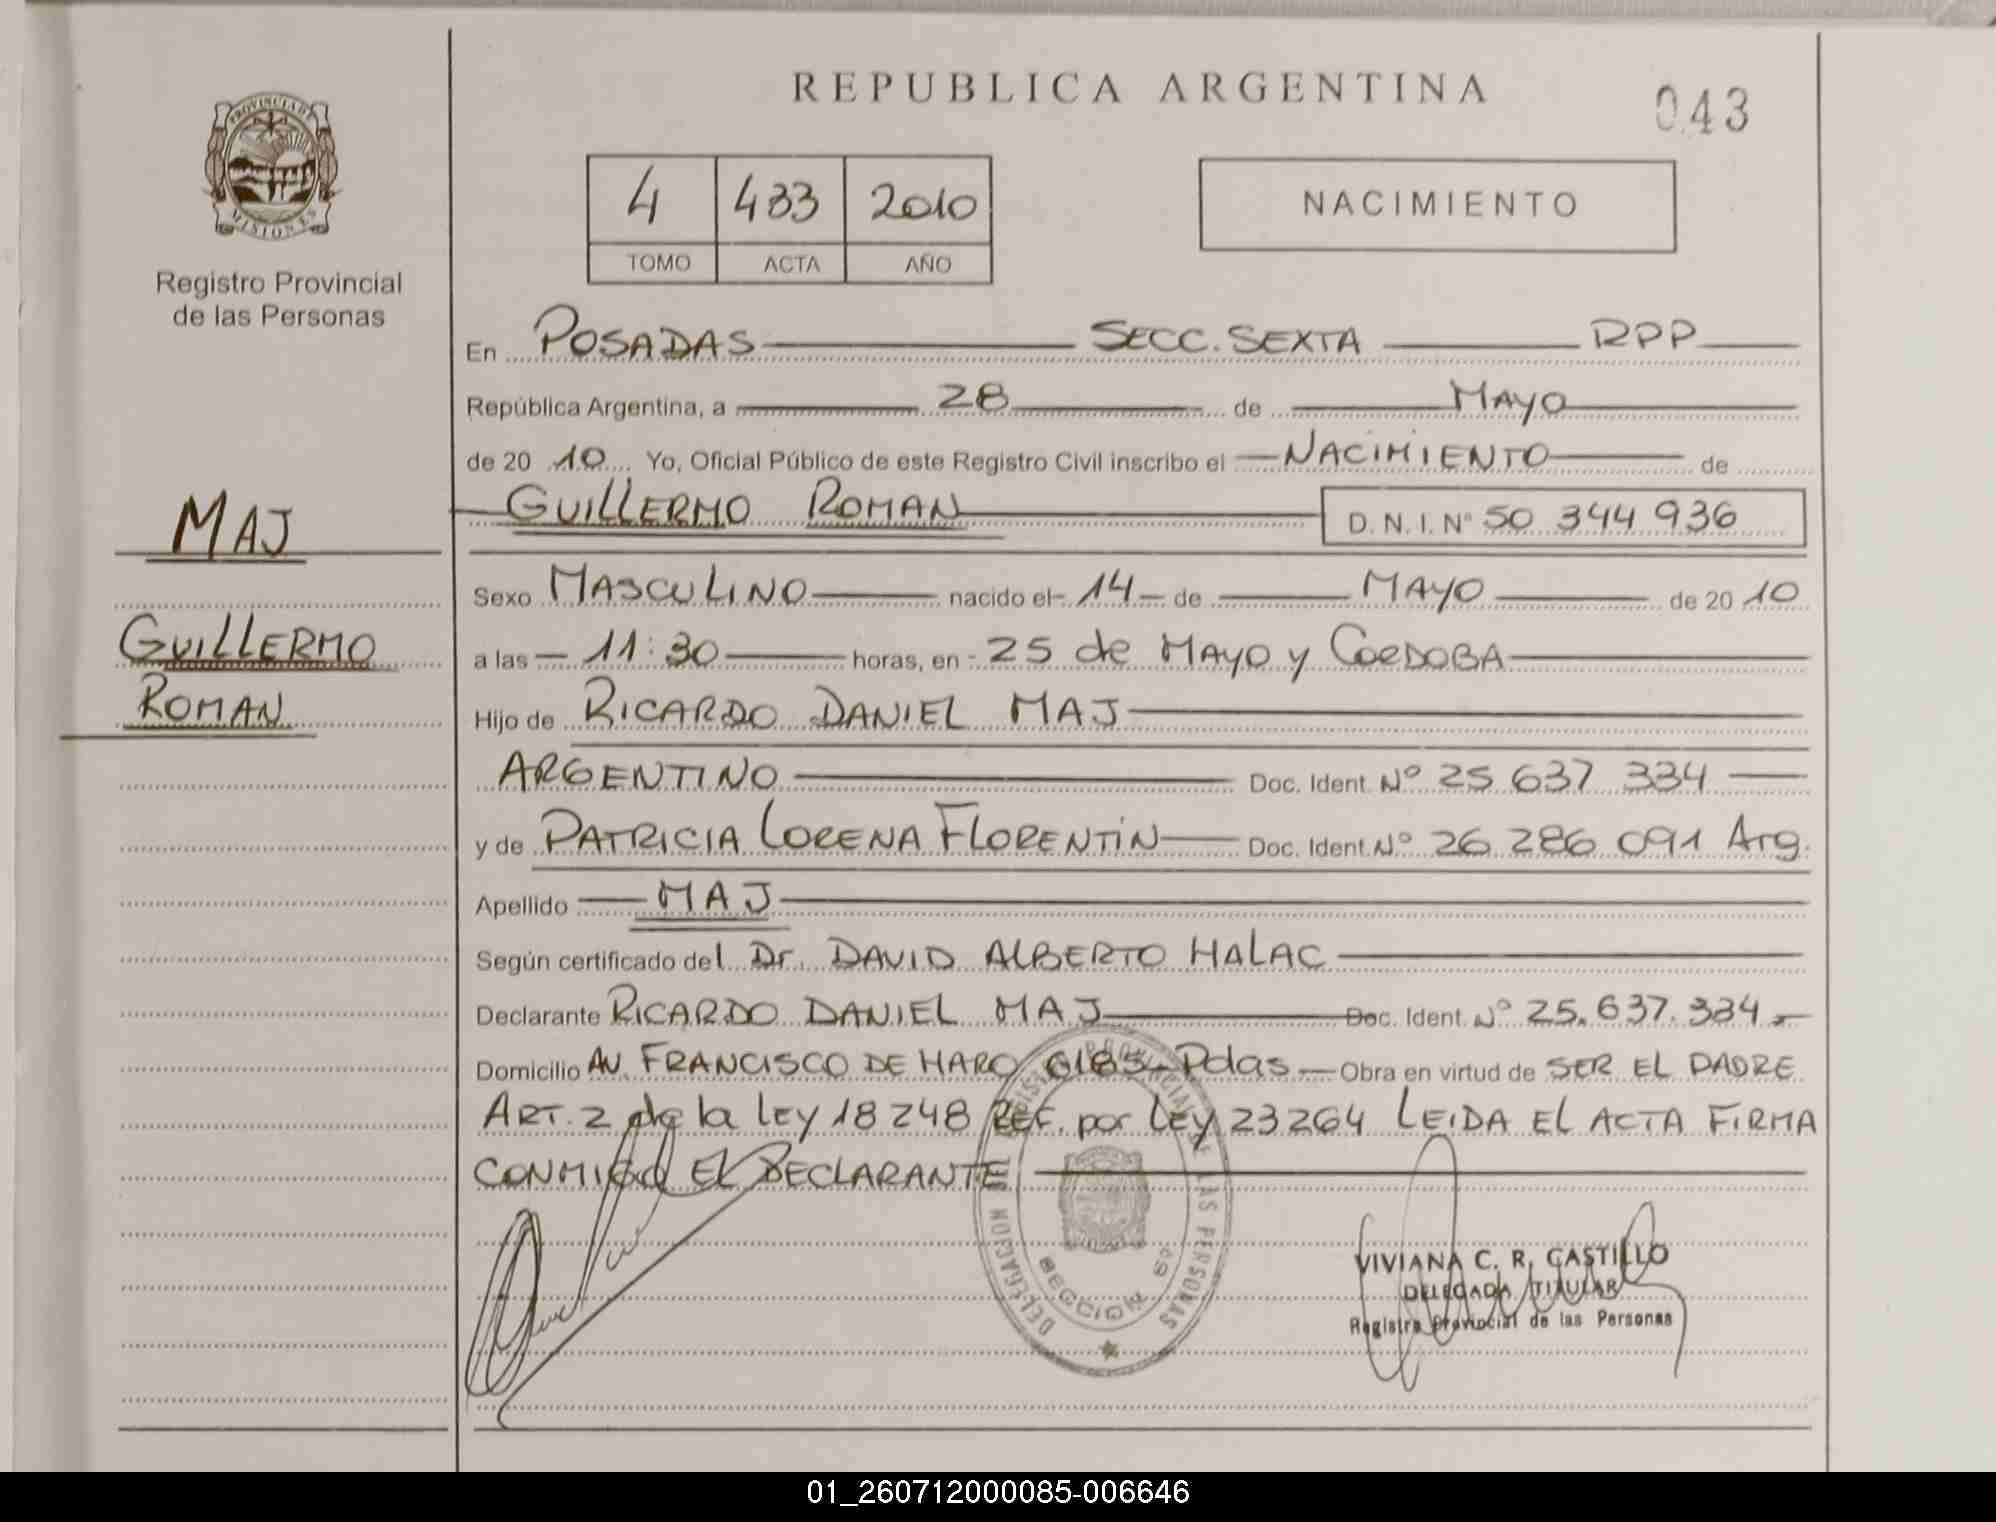 REPUBLICA ARGENTINA
043
PROVINCIA DE
MISIONES
Registro Provincial
de las Personas
4 433 2010
TOMO ACTA AÑO
NACIMIENTO
En POSADAS SECC. SEXTA RPP
República Argentina, a 28 de MAYO
de 20 10 Yo, Oficial Público de este Registro Civil inscribo el NACIMIENTO de
GUILLERMO ROMAN D.N.I. Nº 50 344 936
MAJ
GUILLERMO
ROMAN
Sexo MASCULINO nacido el 14 de MAYO de 20 10
a las 11:30 horas, en 25 de MAYO y CORDOBA
Hijo de RICARDO DANIEL MAJ
ARGENTINO Doc. Ident. Nº 25 637 334
y de PATRICIA LORENA FLORENTÍN Doc. Ident. Nº 26 286 091 Arg.
Apellido MAJ
Según certificado del Dr. DAVID ALBERTO HALAC
Declarante RICARDO DANIEL MAJ Doc. Ident. Nº 25.637.334
Domicilio AV. FRANCISCO DE HARO 6185 Pdas Obra en virtud de SER EL PADRE
ART. 2 de la LEY 18248 REF. por LEY 23264 LEIDA EL ACTA FIRMA
CONMIGO EL DECLARANTE
DELEGACION DEL REGISTRO PROVINCIAL DE LAS PERSONAS
SECCION 6º
VIVIANA C. R. CASTILLO
DELEGADA TITULAR
Registro Provincial de las Personas
01_260712000085-006646